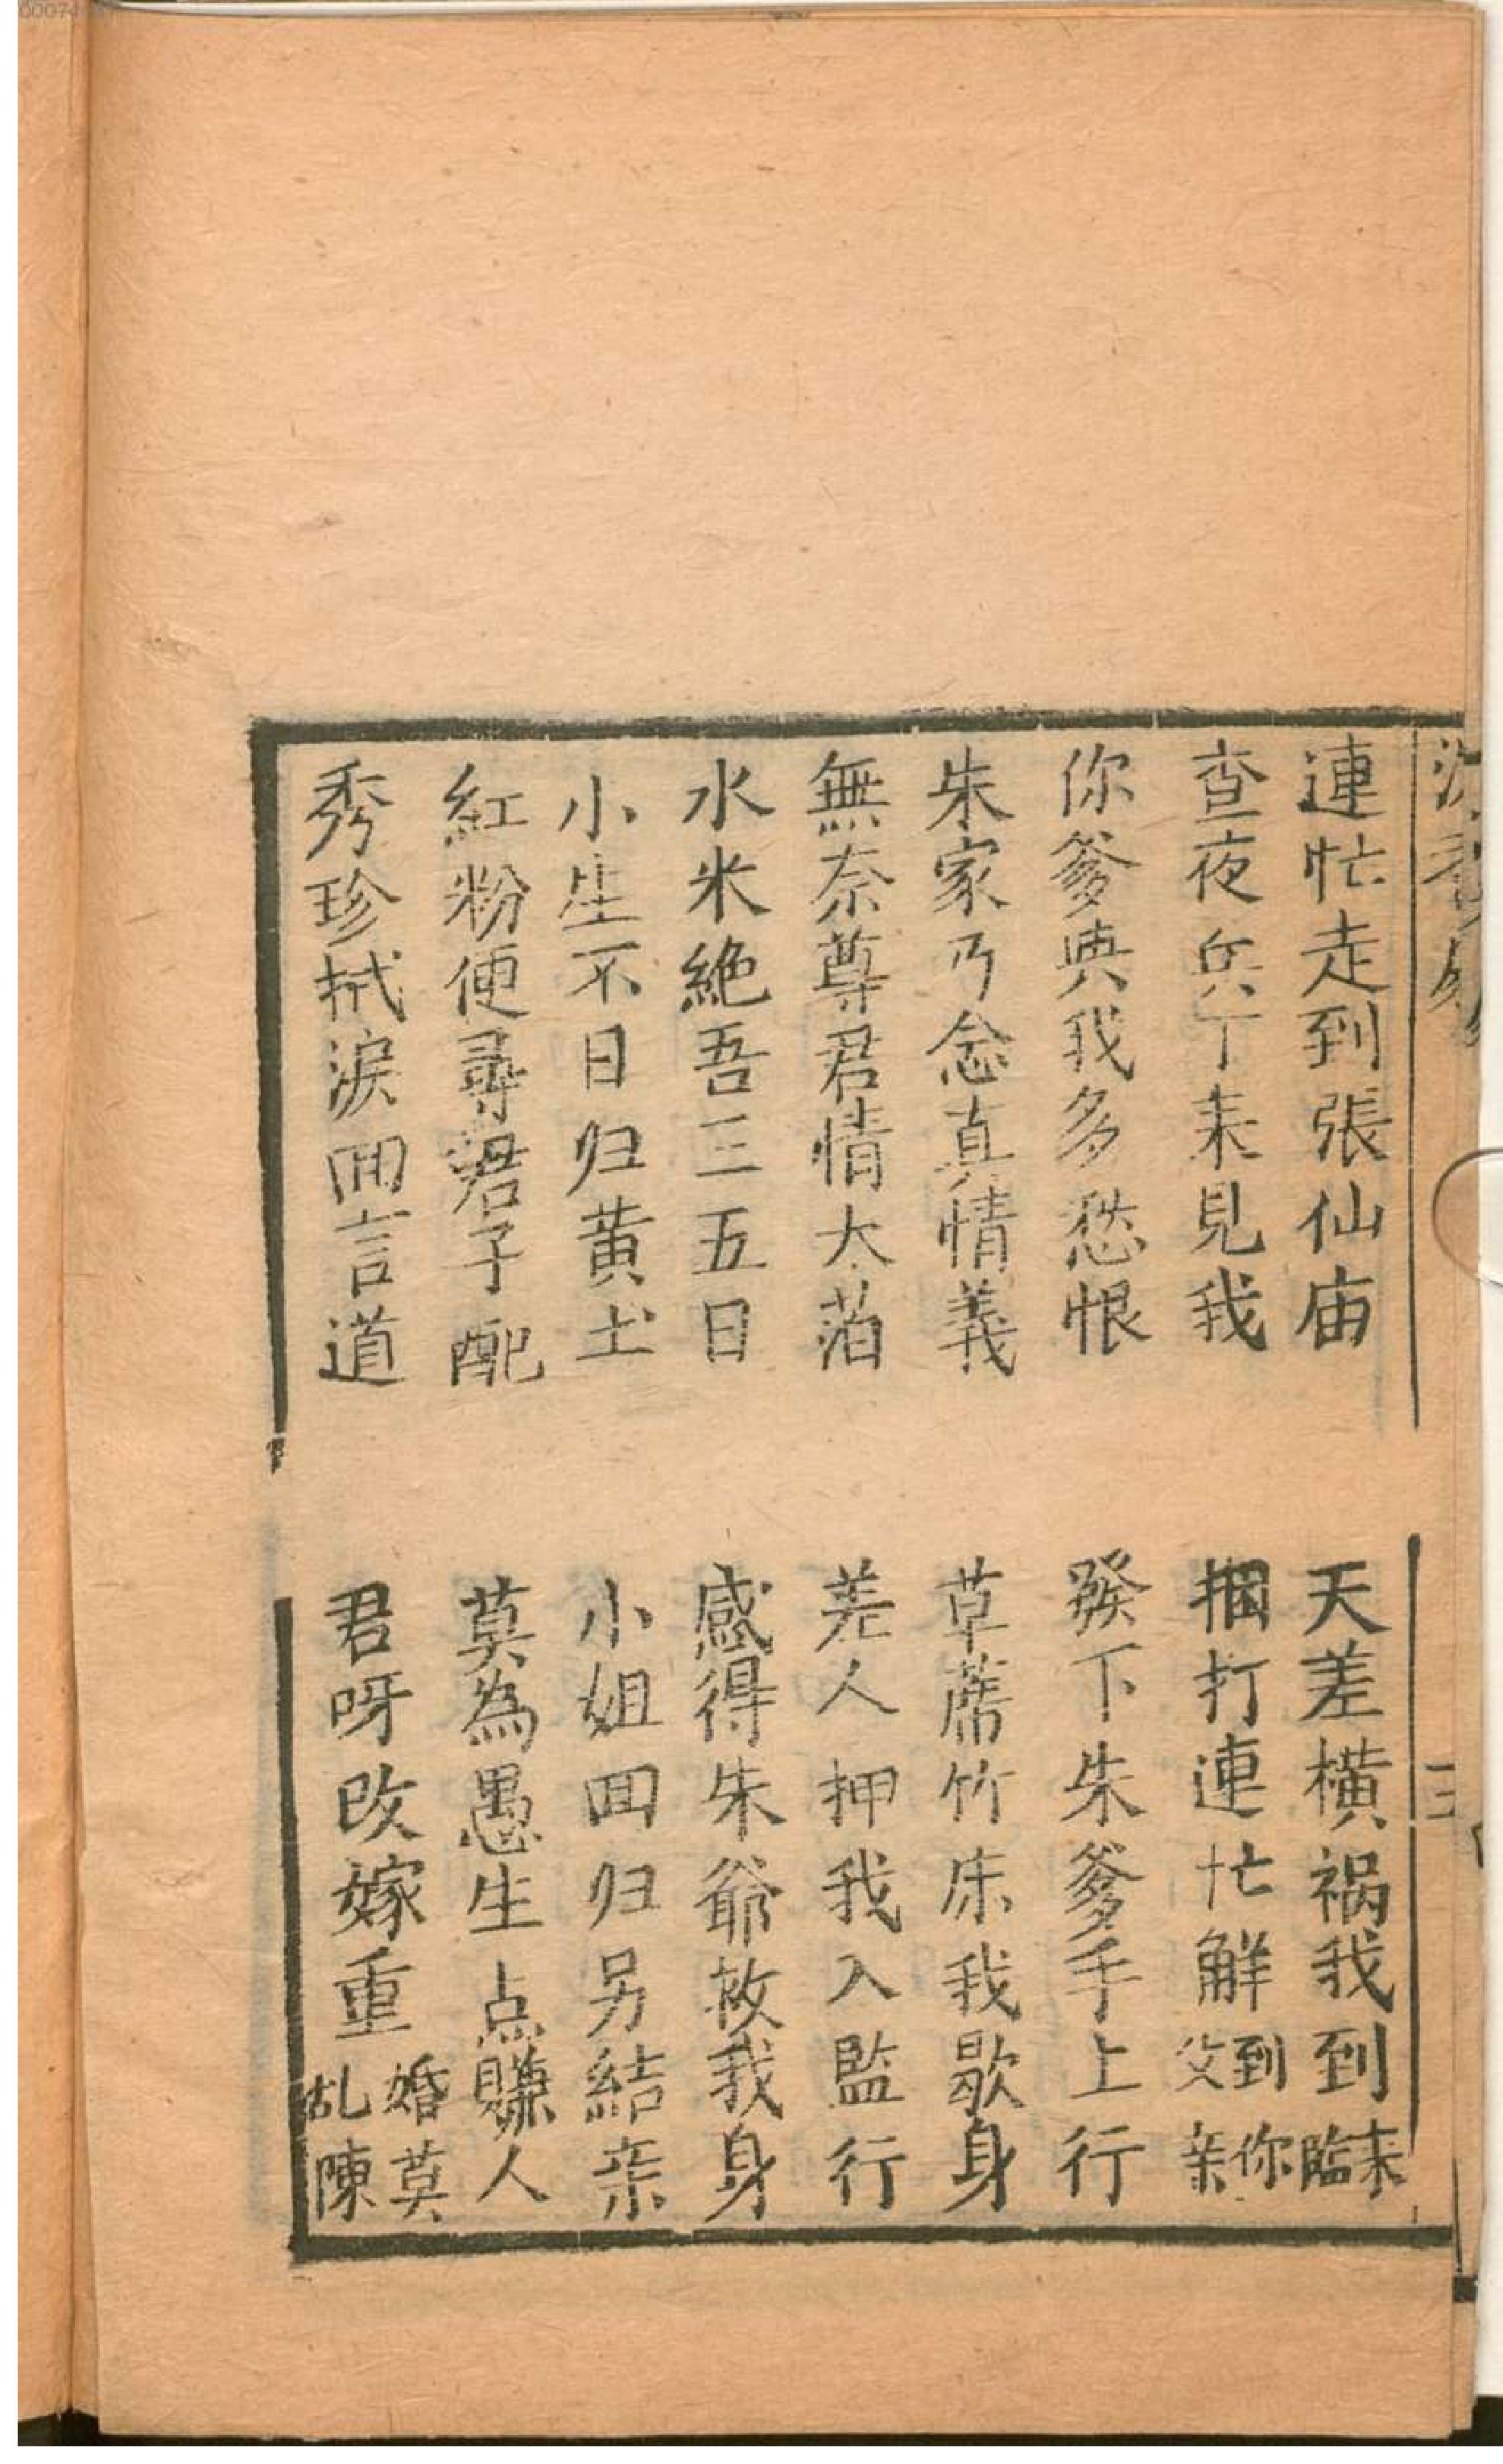 00074
連忙走到張仙庙
天差横禍我到臨来
查夜兵丁来見我
捆打連忙觧到你父亲
你爹與我多愁恨
發下朱爹手上行
朱家乃念真情義
草蓆竹床我歇身
無奈尊君情太萡
差人押我入監行
水米絶吾三五日
感得朱爺救我身
小生不日归黄土
小姐囬归另結亲
紅粉便尋君子配
莫為愚生点賺人
秀珍拭淚囬言道
君呀改嫁重婚莫乱陳